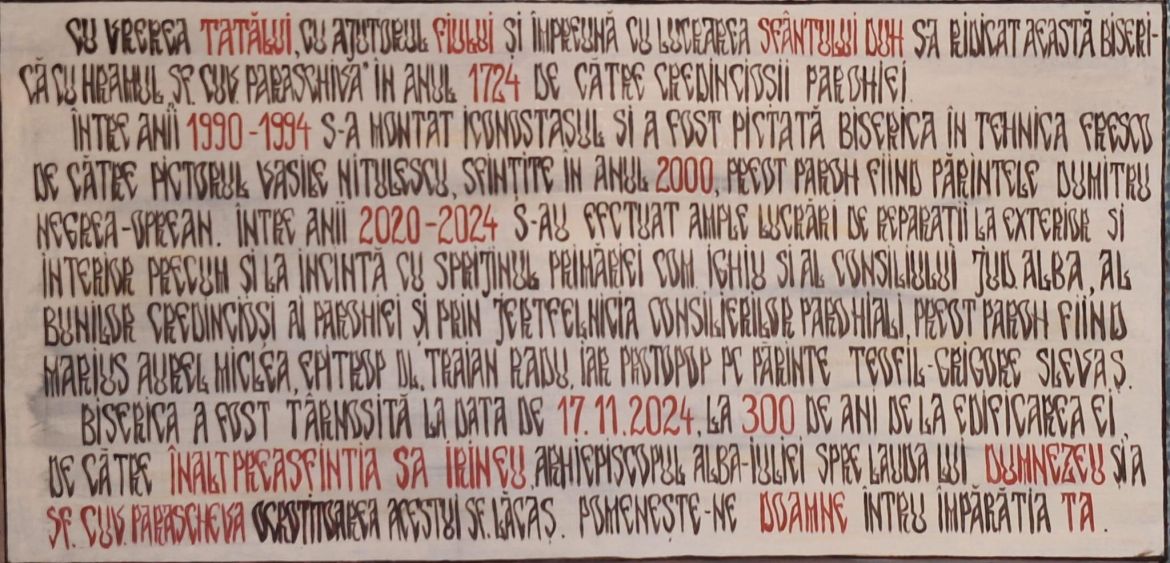 CU VREREA TATĂLUI, CU AJUTORUL FIULUI ȘI ÎMPREUNĂ CU LUCRAREA SFÂNTULUI DUH SA RIDICAT ACEASTĂ BISERI-
CĂ CU HRAMUL „SF. CUV. PARASCHIVĂ" IN ANUL 1724 DE CĂTRE CREDINCIOSII PAROHIEI.
ÎNTRE ANII 1990-1994 S-A MONTAT ICONOSTASUL SI A FOST PICTATĂ BISERICA ÎN TEHNICA FRESCO
DE CĂTRE PICTORUL VASILE NITULESCU, SFINTITE ÎN ANUL 2000, PREOT PAROH FIIND PĂRINTELE DUMITRU
NEGREA-OPREAN. ÎNTRE ANII 2020-2024 S-AU EFECTUAT AMPLE LUCRĂRI DE REPARATII LA EXTERIOR SI
INTERIOR PRECUM ȘI LA INCINTĂ CU SPRIJINUL PRIMĂRIEI COM. IGHIU SI AL CONSILIULUI JUD. ALBA, AL
BUNILOR CREDINCIOȘI AI PAROHIEI ȘI PRIN JERTFELNICIA CONSILIERILOR PAROHIALI, PREOT PAROH FIIND
MARIUS AUREL MICLEA, EPITROP DL. TRAIAN RADU, IAR PROTOPOP PC PĂRINTE TEOFIL-GRIGORE SLEVAȘ.
BISERICA A FOST TÂRNOSITĂ LA DATA DE 17.11.2024, LA 300 DE ANI DE LA EDIFICAREA EI,
DE CĂTRE ÎNALTPREASFINTIA SA IRINEU, ARHIEPISCOPUL ALBA-IULIEI SPRE LAUDA LUI DUMNEZEU ȘI A
SF. CUV. PARASCHEVA OCROTITOAREA ACESTUI SF. LĂCAȘ. POMENEȘTE-NE DOAMNE ÎNTRU ÎMPĂRĂTIA TA.